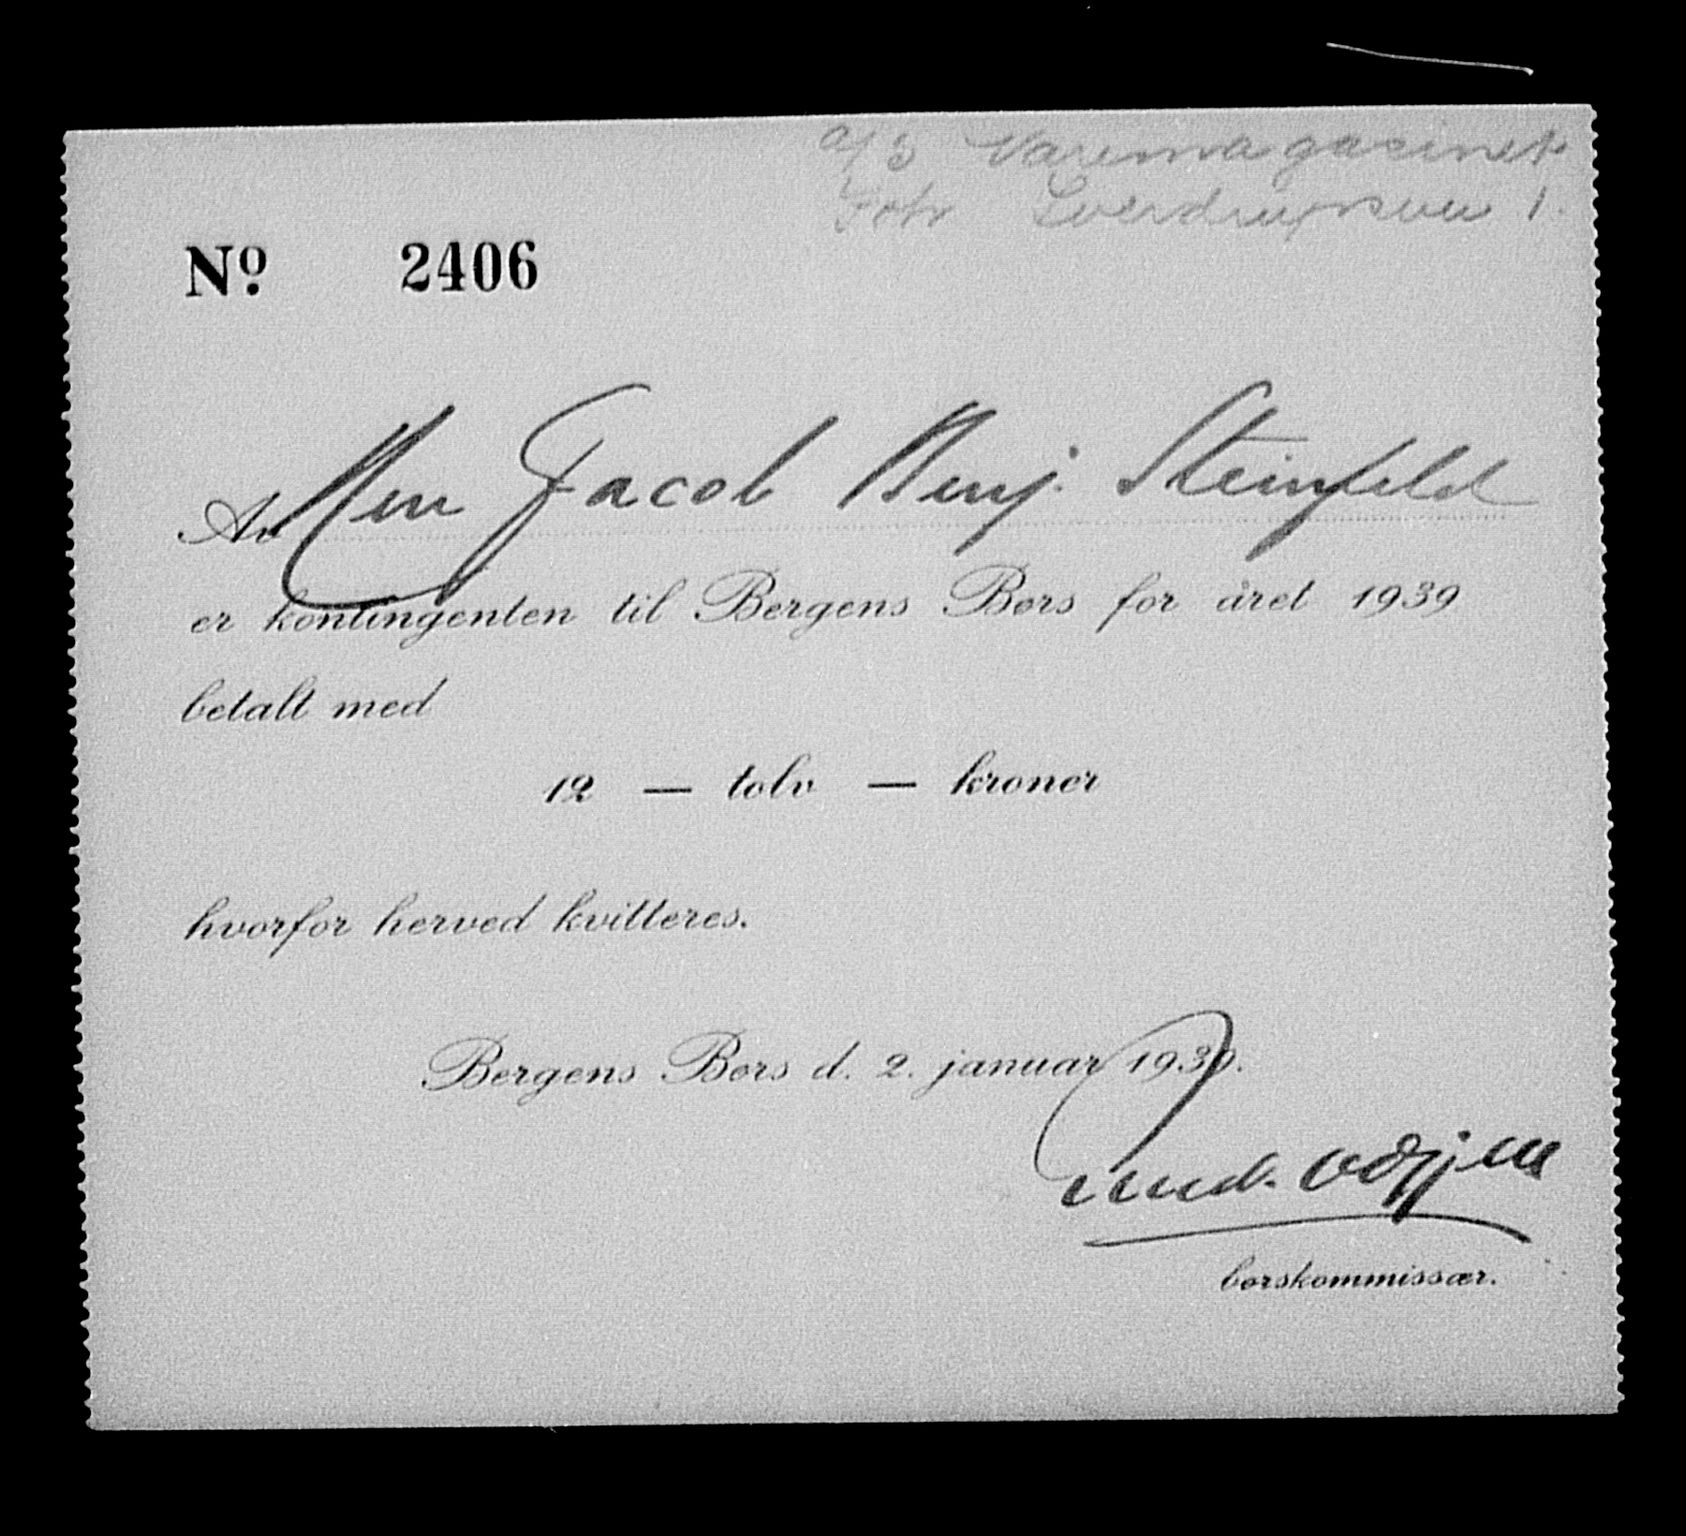 A/S Varemagasinet
Joh Sverdrupsvei 1.
No. 2406
Av Herr Jacob Benj. Steinfeld
er kontingenten til Bergens Børs for året 1939
betalt med
12 — tolv — kroner
hvorfor herved kvitteres.
Bergens Børs d. 2. januar 1939.
børskommissær.